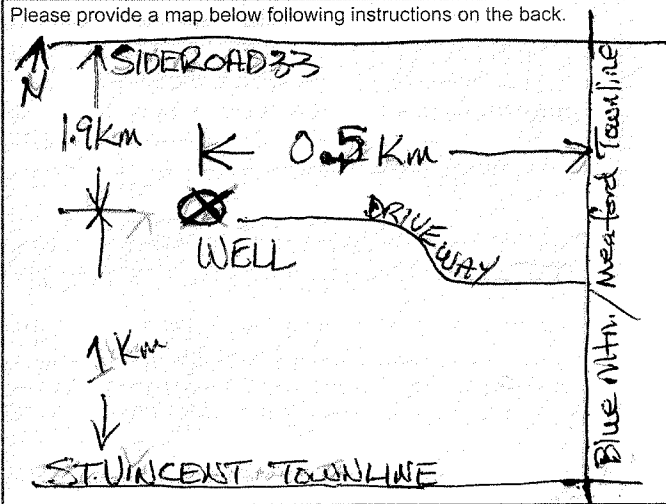 Please provide a map below following instructions on the back.
N
SIDEROAD 33
1.9Km
0.5 Km
DRIVEWAY
WELL
1 Km
ST.VINCENT TOWNLINE
Blue Mtn. / Meaford Townline